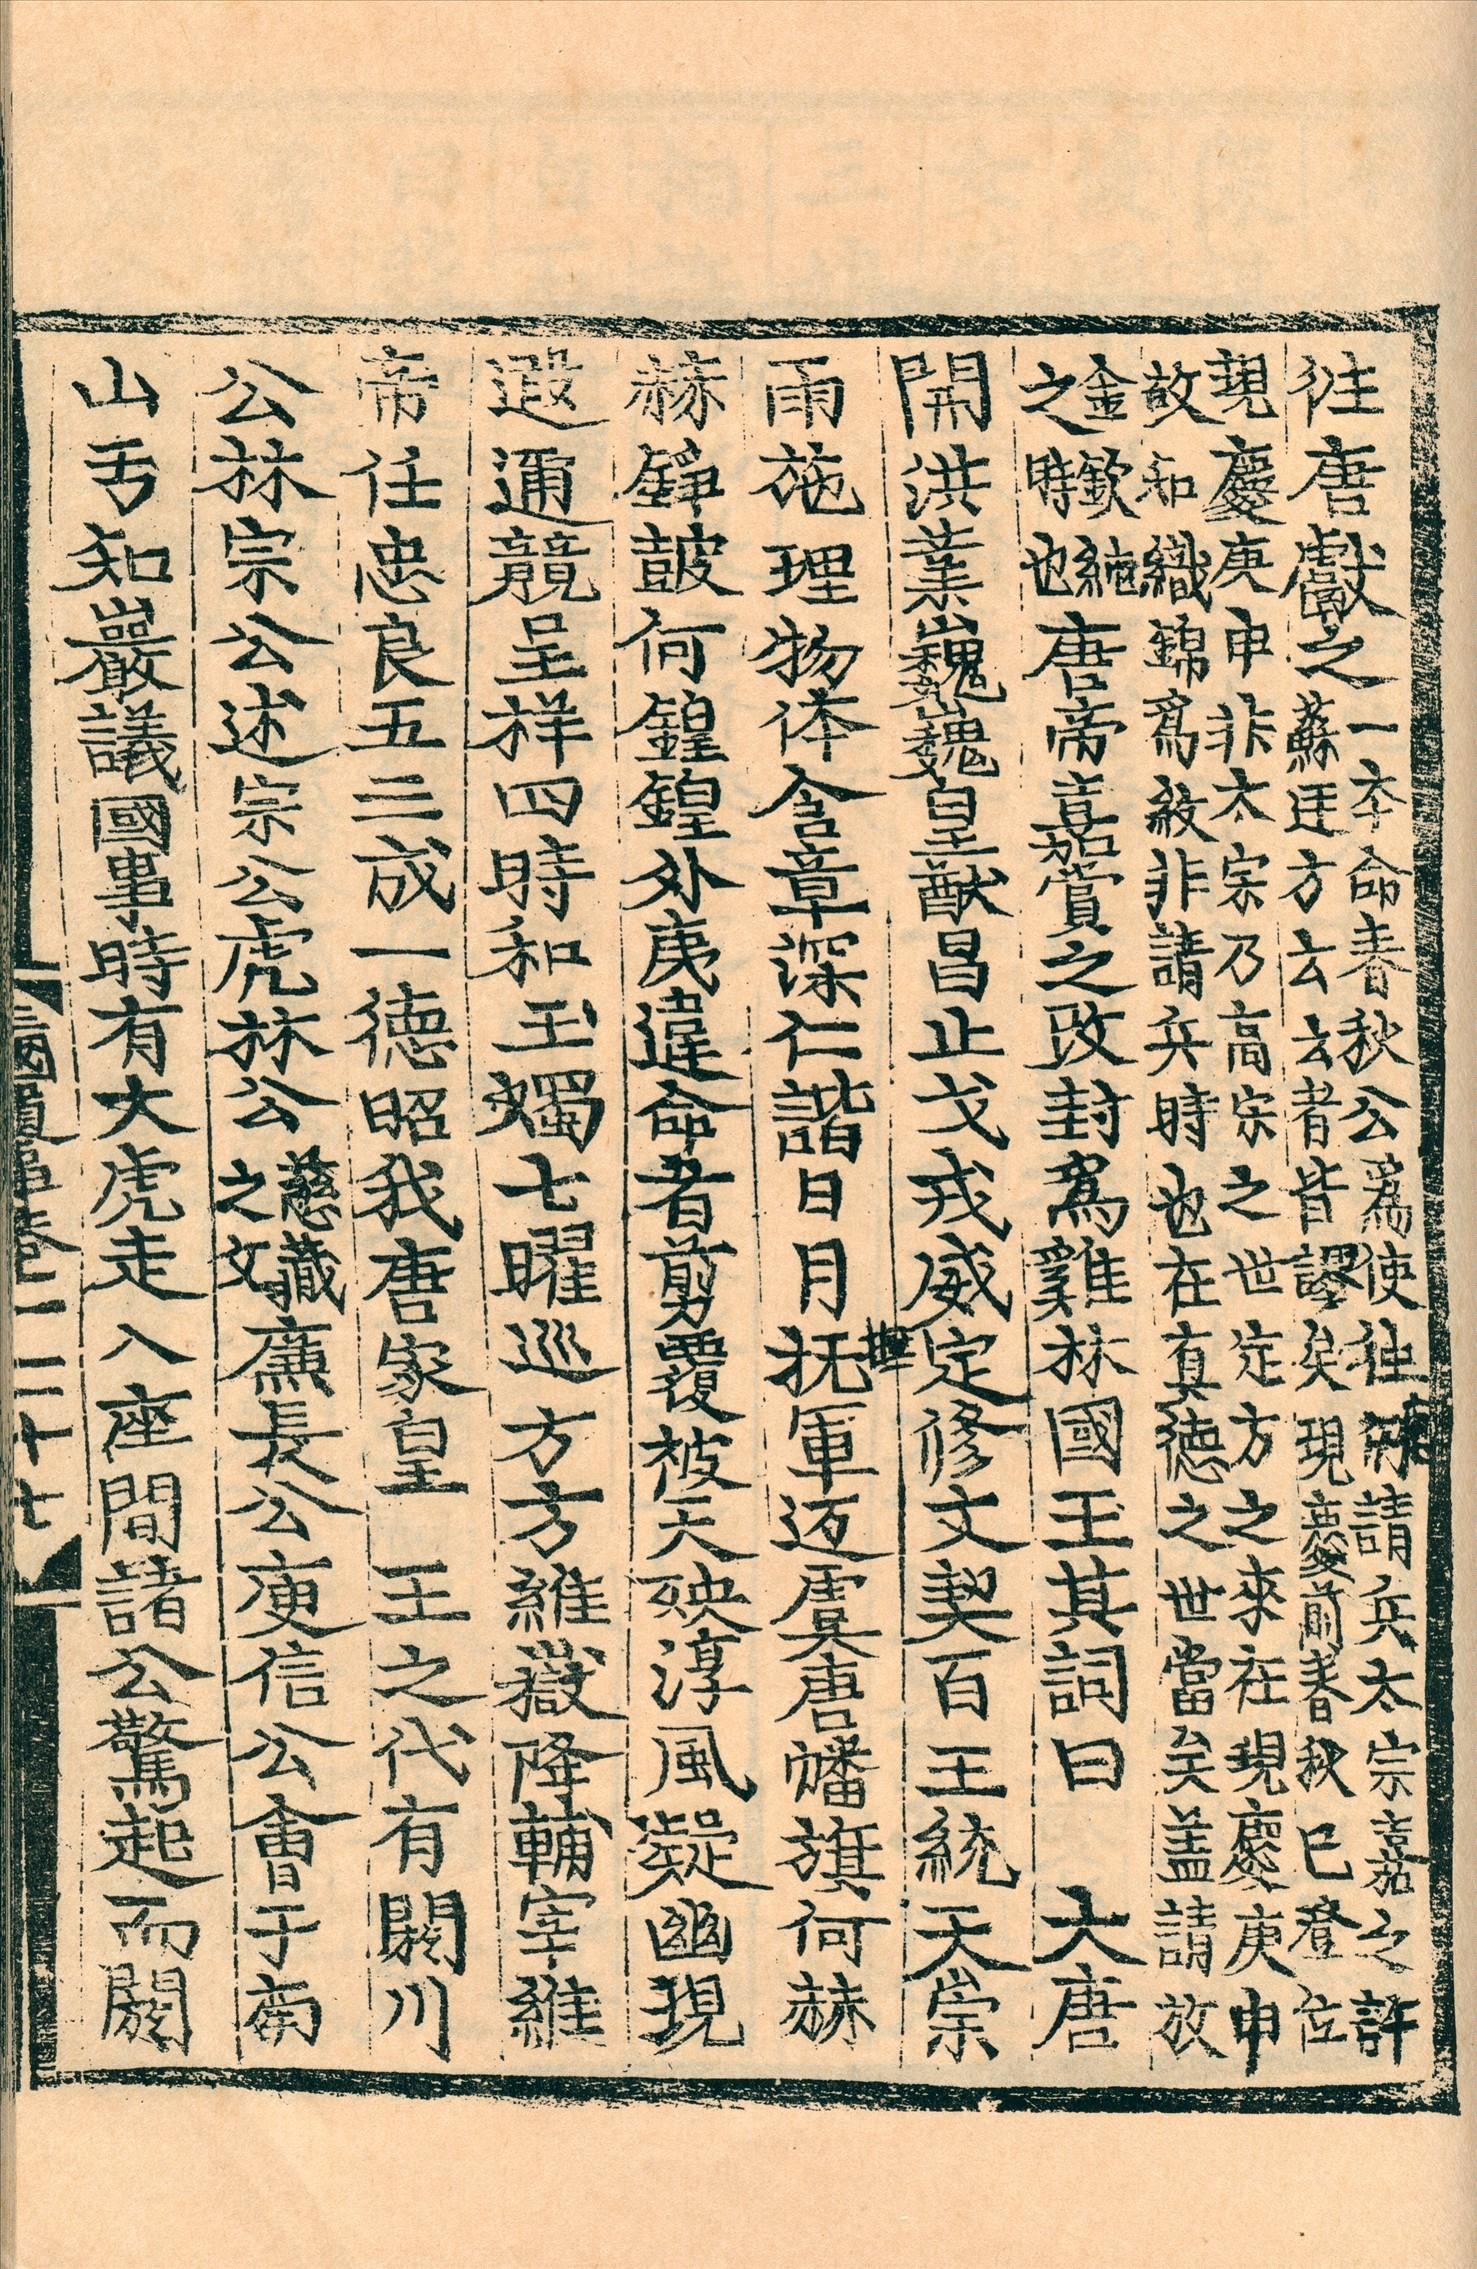 徃唐獻之一本命春秋公爲使徃仍請兵太宗嘉之許
蘇㝎方云云者皆謬矣現慶前春秋已登位
現慶庚申非太宗乃高宗之世定方之來在現慶庚申
故知織錦爲紋非請兵時也在真德之世當矣盖請放
金欽純
之時也唐帝嘉賞之改封爲雞林國王其詞曰 大唐
開洪業巍巍皇猷昌止戈戎威定修文契百王統天崇
雨施理物体含章深仁諧日月抚軍迈虞唐幡旗何赫
赫錚皷何鍠鍠外夷違命者剪覆被天殃淳風凝幽現
遐邇競呈祥四時和玉燭七曜巡方方維嶽降輔宰維
帝任忠良五三成一德昭我唐家皇 王之代有閼川
公林宗公述宗公虎林公慈藏之父廉長公庾信公會于南
山亐知巖議國事時有大虎走入座間諸公驚起而閼
三國遺事卷一 二十七